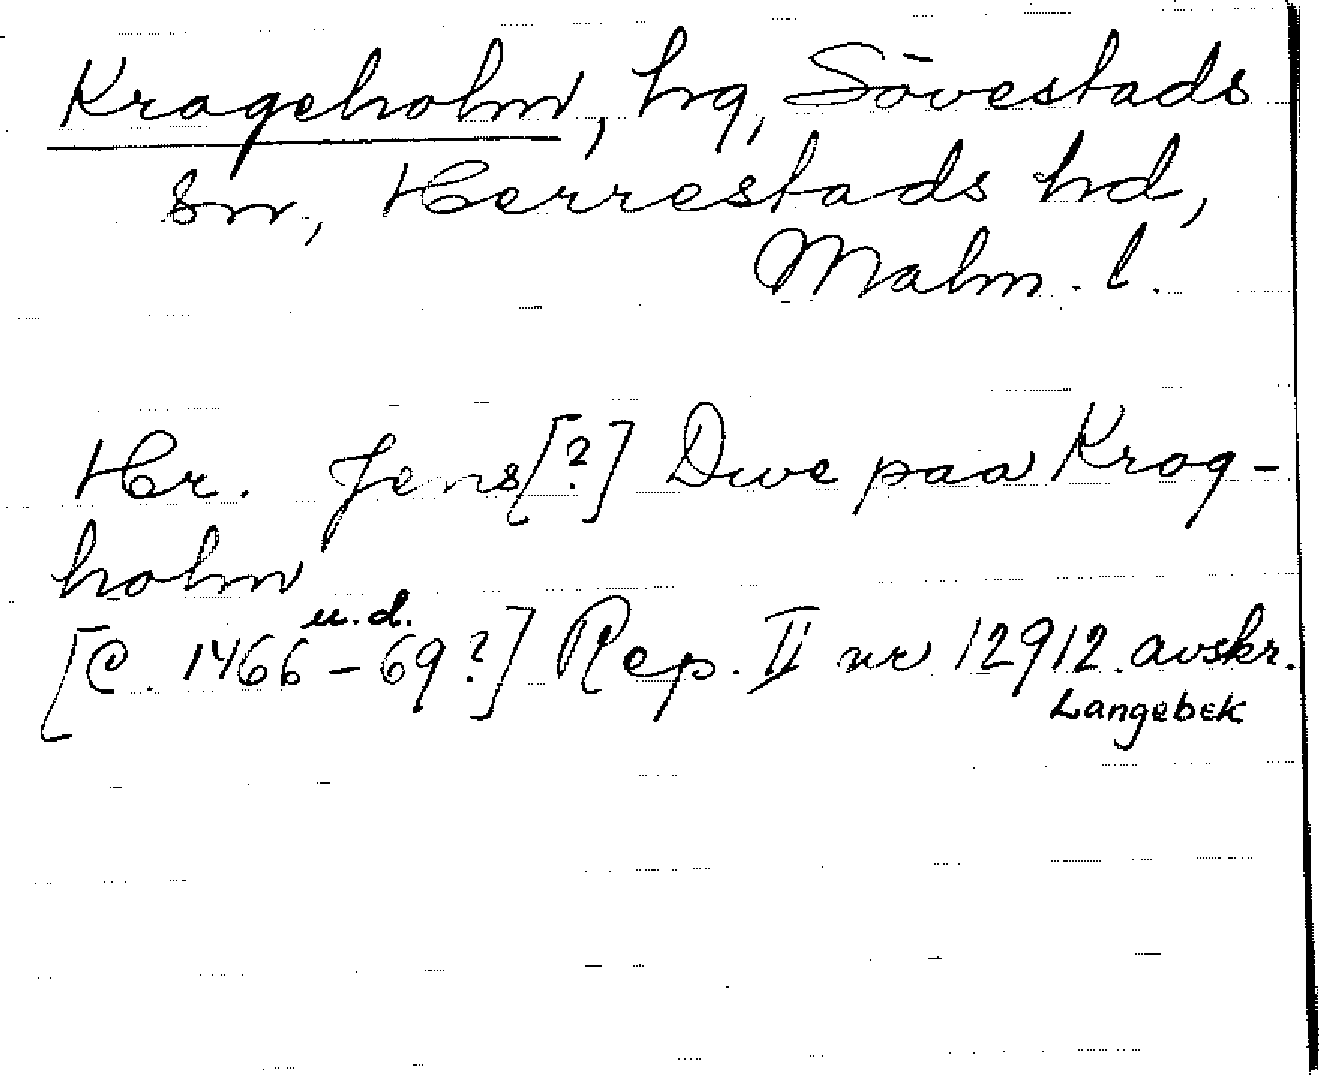 Krageholm, hg, Sövestads
sn, Herrestads hd,
Malm. l.
Hr. Jens[?] Dwe paa Krog-
holm
u.d.
[c. 1466-69?] Rep. II nr 12912. avskr.
Langebek